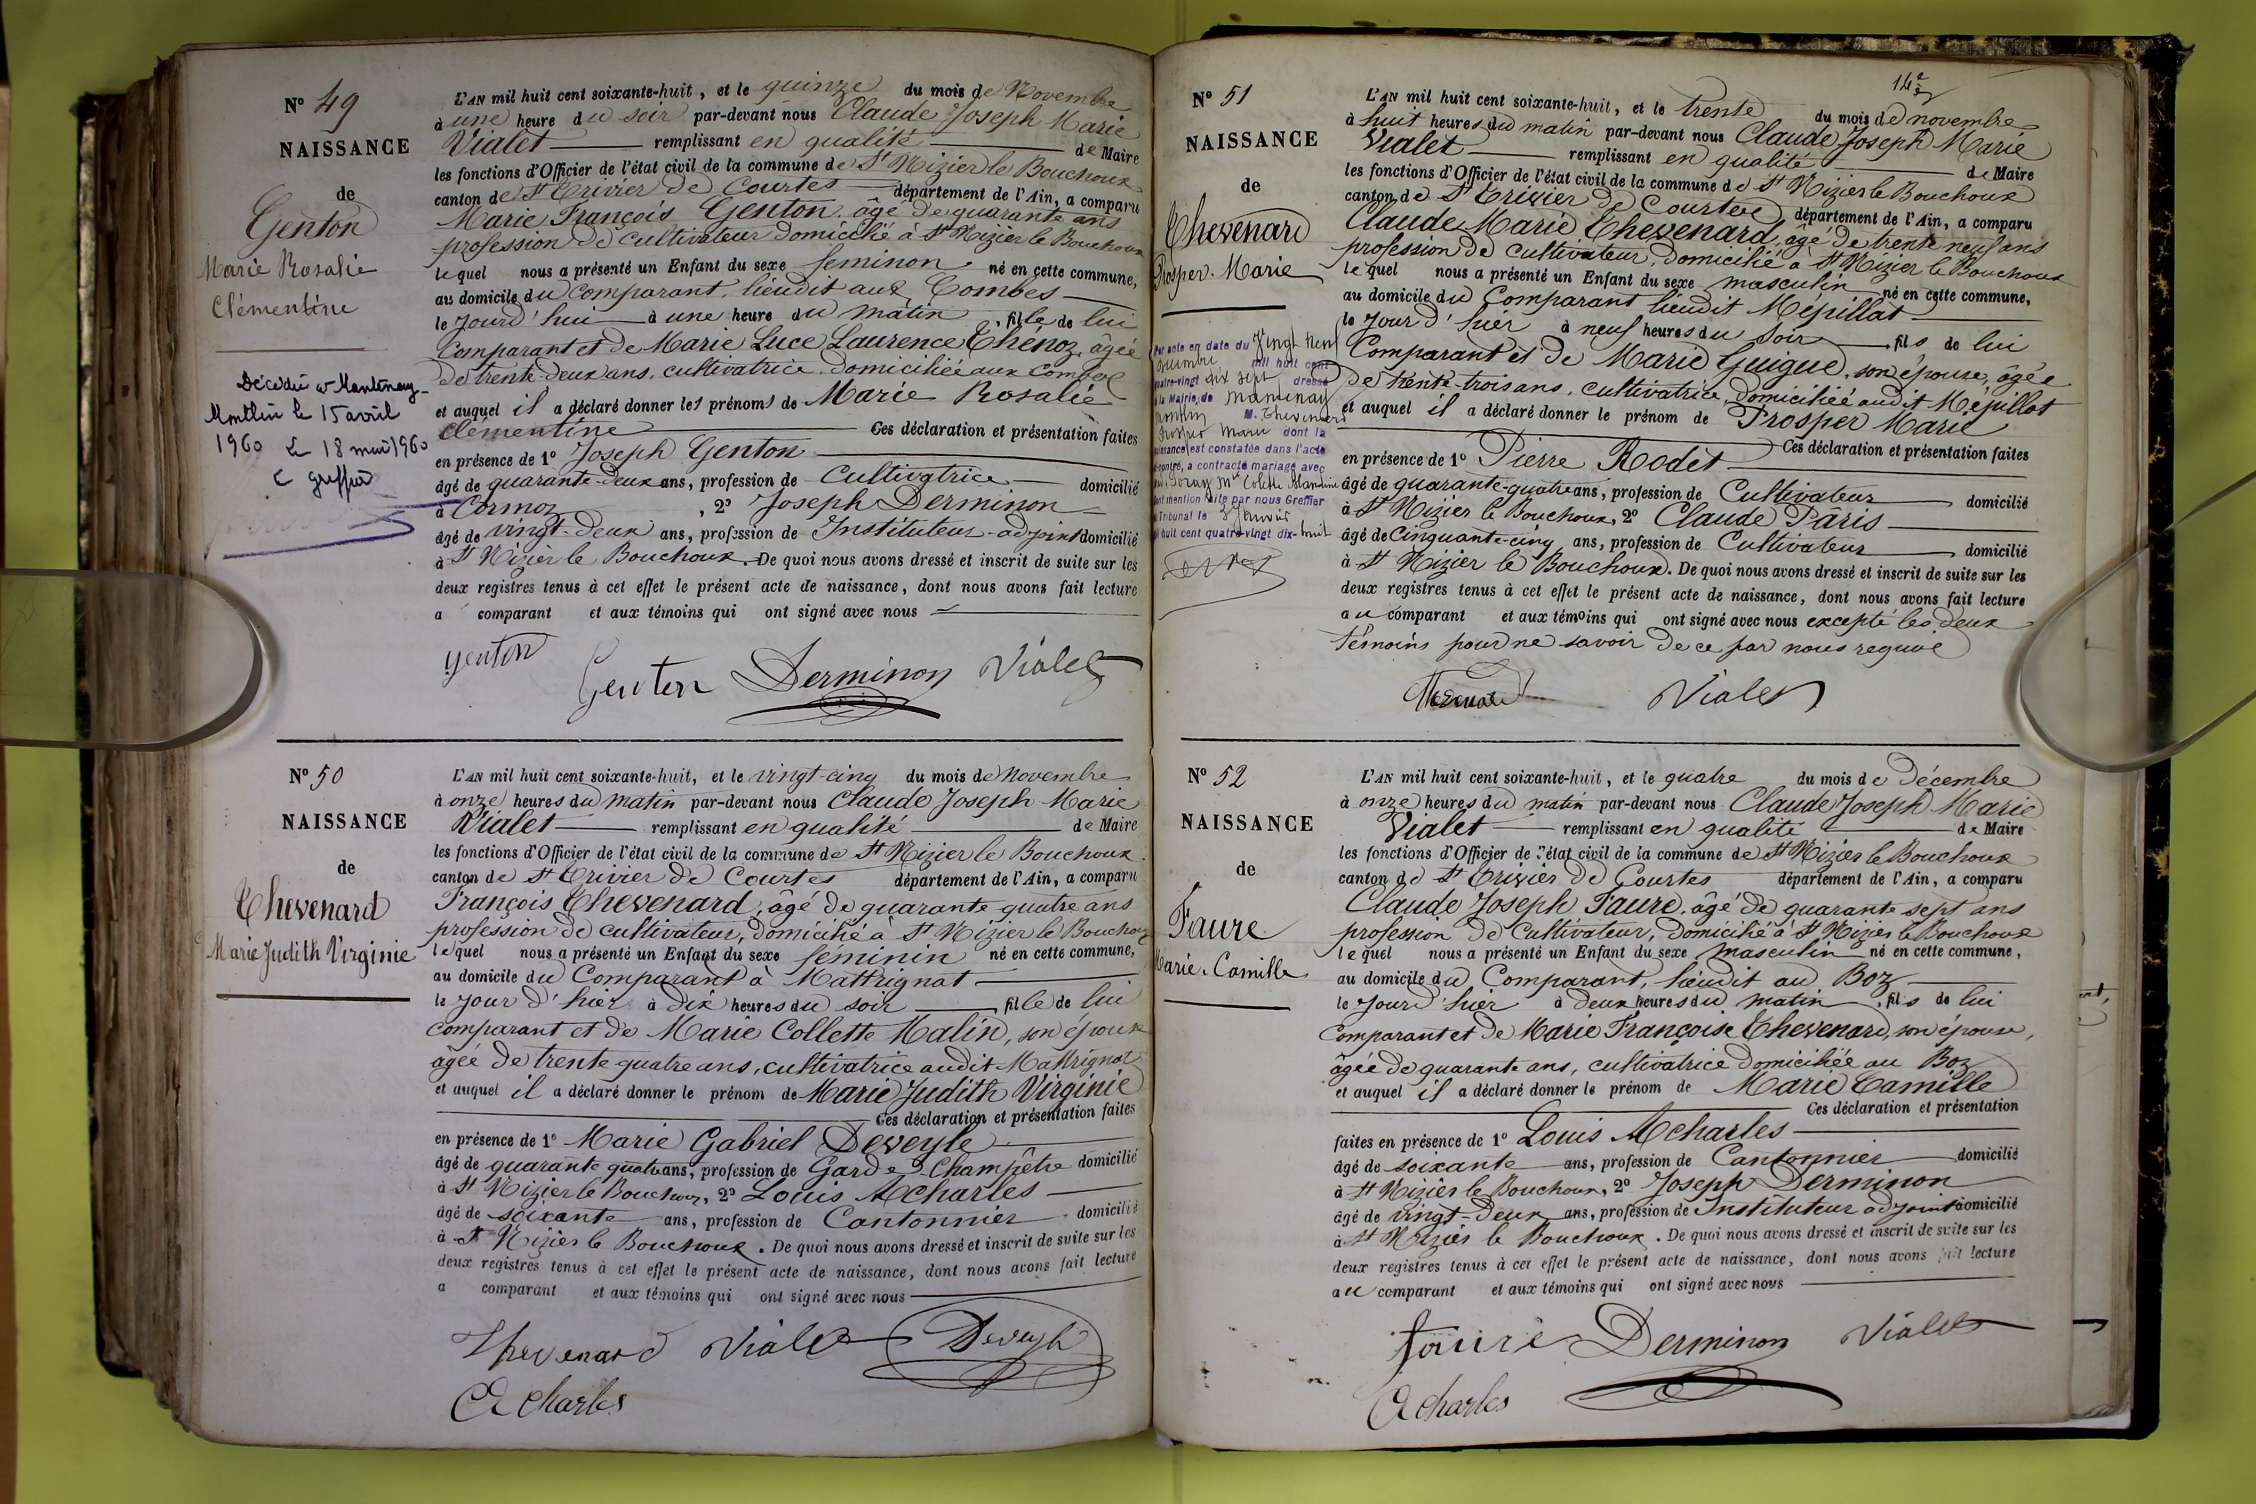 Nº 49
NAISSANCE
de
Genton
Marie Rosalie
Clémentine
Décédée à Mantenay-
Montlin le 15 avril
1960 Le 18 mai 1960
L'AN mil huit cent soixante-huit, et le quinze du mois de Novembre
à une heure du soir par-devant nous Claude Joseph Marie
Vialet remplissant en qualité de Maire
les fonctions d'Officier de l'état civil de la commune de St Nizier le Bouchoux
canton de St Trivier de Courtes département de l'Ain, a comparu
Marie François Genton, âgé de quarante ans
profession de cultivateur domicilié à St Nizier le Bouchoux
lequel nous a présenté un Enfant du sexe feminon né en cette commune,
au domicile du comparant, lieudit aux Combes
le jourd'hui à une heure du matin, fille de lui
Comparant et de Marie Luce Laurence Thénoz, âgée
de trente-deux ans, cultivatrice, domiciliée aux Combes
et auquel il a déclaré donner les prénoms de Marie Rosalie
Clémentine Ces déclaration et présentation faites
en présence de 1º Joseph Genton
âgé de quarante-deux ans, profession de Cultivatrice domicilié
à Cormoz, 2º Joseph Derminon
âgé de vingt-deux ans, profession de Instituteur-adjoint domicilié
à St Nizier le Bouchoux. De quoi nous avons dressé et inscrit de suite sur les
deux registres tenus à cet effet le présent acte de naissance, dont nous avons fait lecture
a comparant et aux témoins qui ont signé avec nous
Genton Genton Derminon Vialet
Nº 50
NAISSANCE
de
Thevenard
Marie Judith Virginie
L'AN mil huit cent soixante-huit, et le vingt-cinq du mois de novembre
à onze heures du matin par-devant nous Claude Joseph Marie
Vialet remplissant en qualité de Maire
les fonctions d'Officier de l'état civil de la commune de St Nizier le Bouchoux
canton de St Trivier de Courtes département de l'Ain, a comparu
François Thevenard, âgé de quarante quatre ans
profession de cultivateur, domicilié à St Nizier le Bouchoux
lequel nous a présenté un Enfant du sexe feminin né en cette commune,
au domicile du Comparant à Mattrignat
le jour d'hier à dix heures du soir fille de lui
comparant et de Marie Collette Malin, son épouse
âgée de trente quatre ans, cultivatrice audit Mattrignat
et auquel il a déclaré donner le prénom de Marie Judith Virginie
Ces déclaration et présentation faites
en présence de 1º Marie Gabriel Deveyle
âgé de quarante quatre ans, profession de Garde-Champêtre domicilié
à St Nizier le Bouchoux, 2º Louis Acharles
âgé de soixante ans, profession de Cantonnier domicilié
à St Nizier le Bouchoux. De quoi nous avons dressé et inscrit de suite sur les
deux registres tenus à cet effet le présent acte de naissance, dont nous avons fait lecture
a comparant et aux témoins qui ont signé avec nous
Thevenard Vialet Deveyle
Acharles
Nº 51
NAISSANCE
de
Thevenard
Prosper Marie
Par acte en date du Vingt Neuf
Decembre mil huit cent
quatre-vingt dix sept dressé
à la Mairie de Mantenay
Montlin M. Thevenard
Prosper Marie dont la
naissance est constatée dans l'acte
ci-contre, a contracté mariage avec
Colette Blandine
dont mention faite par nous Greffier
du Tribunal le 3 Janvier
mil huit cent quatre-vingt dix-huit
L'AN mil huit cent soixante-huit, et le trente du mois de novembre
à huit heures du matin par-devant nous Claude Joseph Marie
Vialet remplissant en qualité de Maire
les fonctions d'Officier de l'état civil de la commune de St Nizier le Bouchoux
canton de St Trivier de Courtes département de l'Ain, a comparu
Claude Marie Thevenard, âgé de trente neuf ans
profession de cultivateur, domicilié à St Nizier le Bouchoux
lequel nous a présenté un Enfant du sexe masculin né en cette commune,
au domicile du Comparant lieudit Mépillat
le jour d'hier à neuf heures du soir fils de lui
Comparant et de Marie Guigue, son épouse, âgée
de trente-trois ans, cultivatrice, domiciliée audit Mépillat
et auquel il a déclaré donner le prénom de Prosper Marie
Ces déclaration et présentation faites
en présence de 1º Pierre Rodet
âgé de quarante-quatre ans, profession de Cultivateur domicilié
à St Nizier le Bouchoux, 2º Claude Pâris
âgé de Cinquante-cinq ans, profession de Cultivateur domicilié
à St Nizier le Bouchoux. De quoi nous avons dressé et inscrit de suite sur les
deux registres tenus à cet effet le présent acte de naissance, dont nous avons fait lecture
au comparant et aux témoins qui ont signé avec nous excepté les deux
témoins pour ne savoir de ce par nous requis
Thevenard Vialet
Nº 52
NAISSANCE
de
Faure
Marie Camille
L'AN mil huit cent soixante-huit, et le quatre du mois de décembre
à onze heures du matin par-devant nous Claude Joseph Marie
Vialet remplissant en qualité de Maire
les fonctions d'Officier de l'état civil de la commune de St Nizier le Bouchoux
canton de St Trivier de Courtes département de l'Ain, a comparu
Claude Joseph Faure, âgé de quarante sept ans
profession de Cultivateur, domicilié à St Nizier le Bouchoux
lequel nous a présenté un Enfant du sexe masculin né en cette commune,
au domicile du Comparant, lieudit au Boz
le jourd'hier à deux heures du matin, fils de lui
Comparant et de Marie Françoise Thevenard, son épouse,
âgée de quarante ans, cultivatrice domiciliée au Boz
et auquel il a déclaré donner le prénom de Marie Camille
Ces déclaration et présentation
faites en présence de 1º Louis Acharles
âgé de soixante ans, profession de Cantonnier domicilié
à St Nizier le Bouchoux, 2º Joseph Derminon
âgé de vingt-deux ans, profession de Instituteur adjoint domicilié
à St Nizier le Bouchoux. De quoi nous avons dressé et inscrit de suite sur les
deux registres tenus à cet effet le présent acte de naissance, dont nous avons fait lecture
au comparant et aux témoins qui ont signé avec nous
faure Derminon Vialet
Acharles